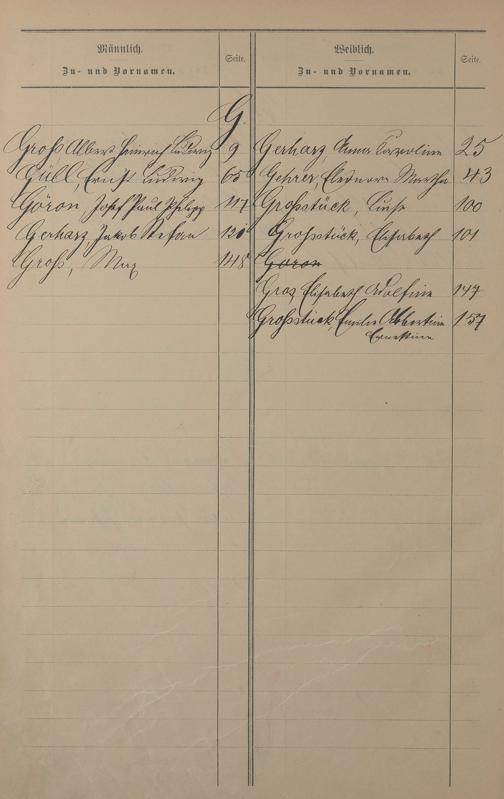 Männlich.
Zu- und Vornamen.
Seite.
Weiblich.
Zu- und Vornamen.
Seite.
G.
Groß Albert Heinrich Ludwig 9
Güll, Ernst Ludwig 65
Göron, Josef Paul Philipp 117
Gerharz, Jakob Stefan 120
Groß, Max 148
Gerharz, Anna Karoline 25
Gehrer, Eleonora Martha 43
Großstück, Luise 100
Großstück, Elisabeth 101
Göron
Gros, Elisabeth Adolfine 147
Großstück, Emilie Albertine 157
Ernestine